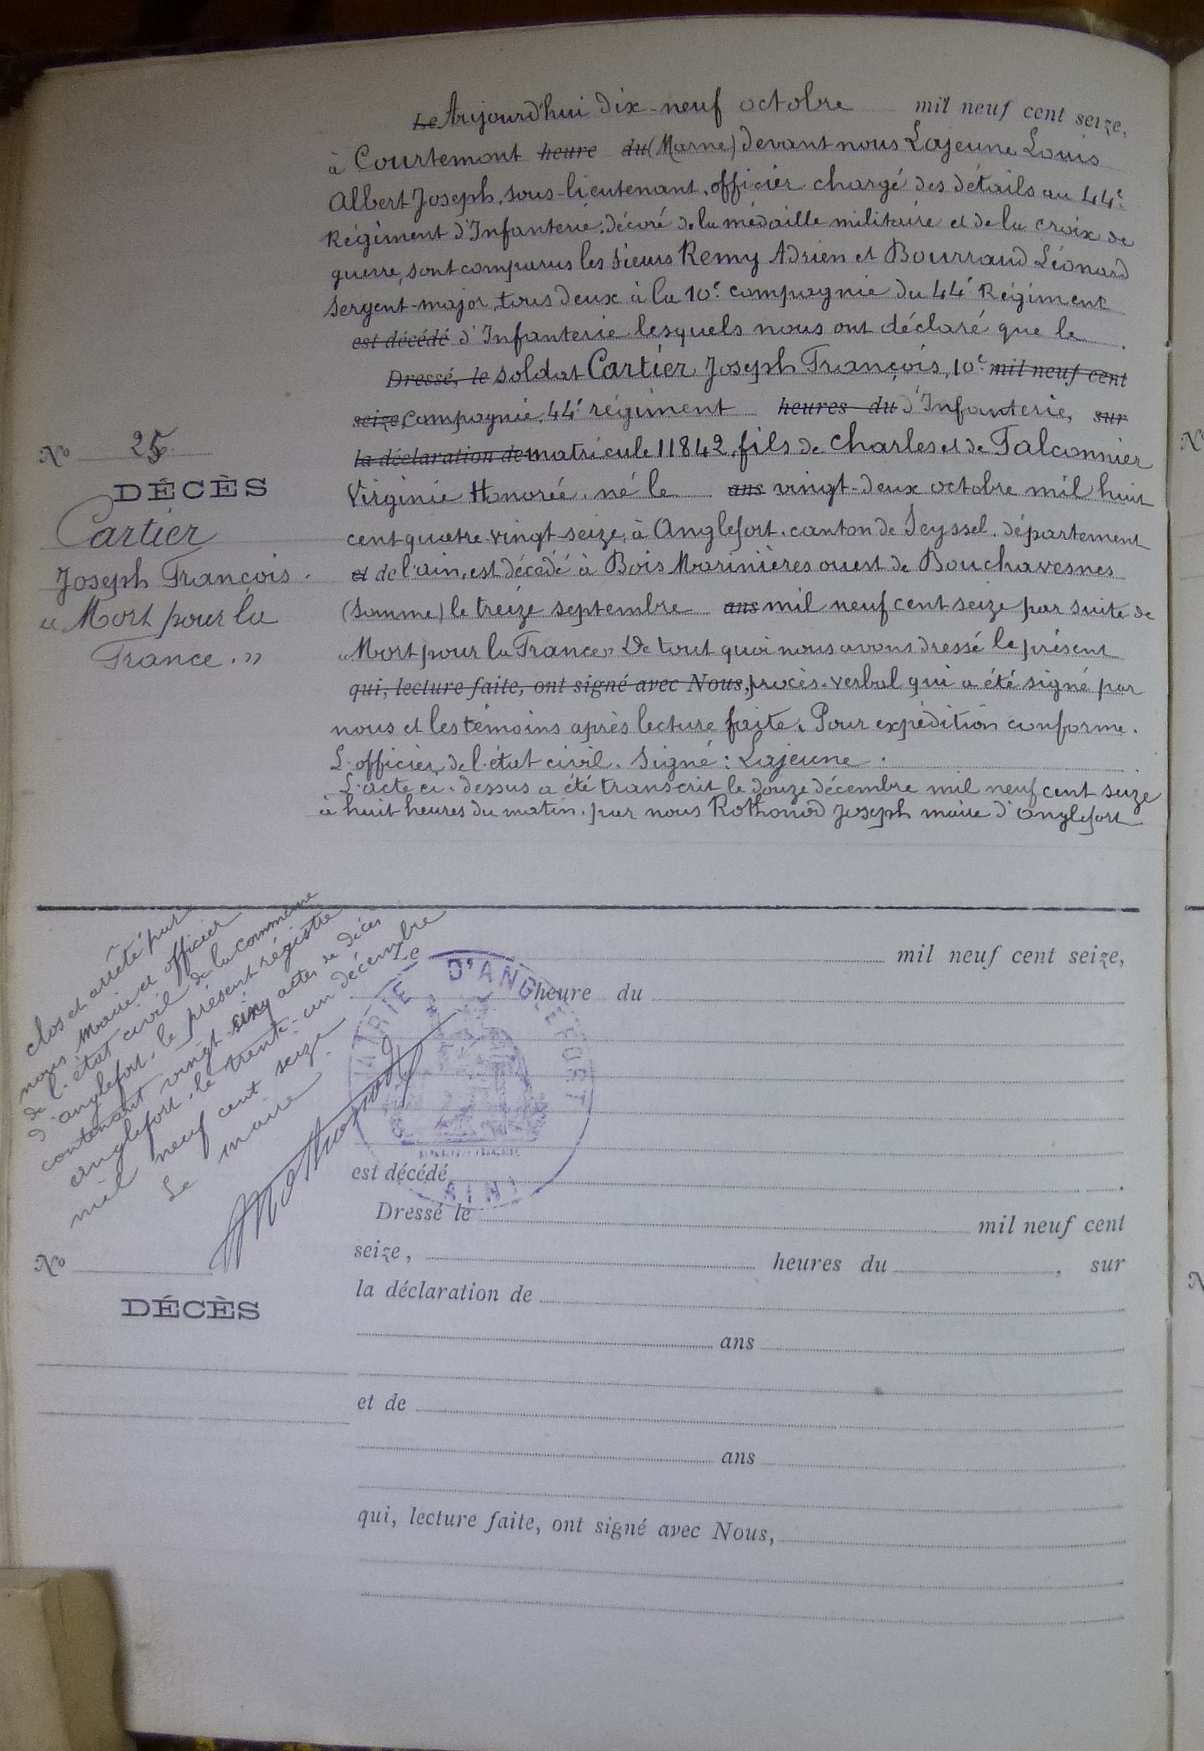 Le Aujourd'hui dix-neuf octobre mil neuf cent seize,
à Courtemont heure du (Marne) devant nous Lajeune Louis
Albert Joseph, sous-lieutenant, officier chargé des détails au 44e
Régiment d'Infanterie, décoré de la médaille militaire et de la croix de
guerre, sont comparus les sieurs Remy Adrien et Bourraud Léonard
sergent-major, tous deux à la 10e compagnie du 44e Régiment
est décédé d'Infanterie lesquels nous ont déclaré que le
Dressé, le soldat Cartier Joseph François, 10e mil neuf cent
seize, compagnie, 44e régiment heures du d'Infanterie, sur
la déclaration de matricule 11842, fils de Charles et de Falconnier
Virginie Honorée, né le ans vingt-deux octobre mil huit
cent quatre-vingt-seize, à Anglefort, canton de Seyssel, département
et de l'ain, est décédé à Bois Marinières ouest de Bouchavesnes
(Somme) le treize septembre ans mil neuf cent seize par suite de
"Mort pour la France" De tout quoi nous avons dressé le présent
qui, lecture faite, ont signé avec Nous, procès-verbal qui a été signé par
nous et les témoins après lecture faite. Pour expédition conforme.
L'officier de l'état civil. Signé : Lajeune.
L'acte ci-dessus a été transcrit le douze décembre mil neuf cent seize
à huit heures du matin, par nous Rothonod Joseph maire d'anglefort
No 25
DÉCÈS
Cartier
Joseph François.
"Mort pour la
France."
clos et arrêté par
nous maire et officier
de l'état civil de la commune
d'anglefort, le présent régistre
contenant vingt-cinq actes de décès
anglefort, le trente-un décembre
mil neuf cent seize.
Le maire
Rothonod
MAIRIE D'ANGLEFORT
(AIN)
Le mil neuf cent seize,
heure du
est décédé
Dressé le mil neuf cent
seize, heures du , sur
la déclaration de
ans
et de
ans
qui, lecture faite, ont signé avec Nous,
No
DÉCÈS
No
N